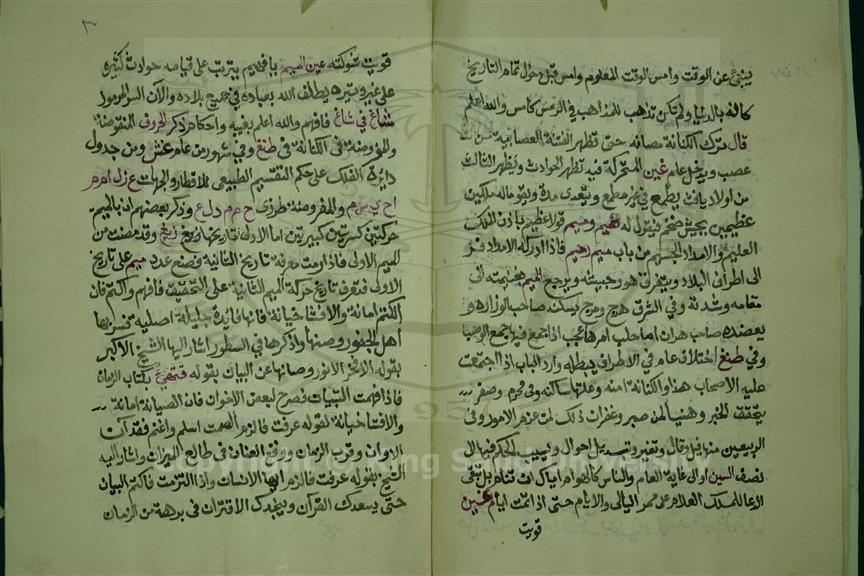 ينبئ عن الوقت وامس الوقت المعلوم وامس قبل دخول تمام التاريخ
كانه بالدنيا ولم تكن تذهب المذاهب في الرمس كامس والله اعلم
قال مترك الكنانة مصانه حتى تظهر الفتنة العصابية
عصب ويدخل عام غين المتحركة فيه تظهر الحوادث ويظهر الثالث
من اولاد يافث يطمع في غير مطمع ويتعدى مدة وليتوماله ملكين
عظيمين بجيش ضخم فينزل له وميم قولا عظيم باذن الملك
العليم والامداد الجسيم من باب ميم فاذا ادركه الامداد فر
الى اطراف البلاد ويتفرق هو وجيشه ويرجع الميم بغنيمته الى
مقامه وشدته وفي الشرق هرج ومرج يسكنه صاحب الوزارة و
يعضده صاحب هران اما حلب امرها عجب اذا اجتمع فيها جمع
وفي طنغ اختلاف عام في الاطراف يبطله وارد الباب اذا اجتمعت
عليه الاصحاب هذا والكنانة امنة وعلتها ساكنه وفي محرم وصفر
يتحقق الخبر وهنيا لمن صبر وغفران ذلك لمن عزم الامور وفي
الربيعين منها قيل وقال وتغير وتبديل احوال ويسيب الحكم فيها الى
نصف السين او الى غاية العام والناس كالهوام اياك ان تنام بل تبقى
الرعا للملك العلام على ممر الليالى والايام حتى اذا تمت ايام غين
قويت
٣
قويت شوكته عين الميم يافهيم يترتب على قيامه حوادث كثيره
على غير وتيره يلطف الله بعباده في جميع بلاده والآن السر المرموز
شاغ في شاغ فافهم والله اعلم بغيبه واحكام ذكر الحروف المنقوضة
والمؤمنة في الكنانة في طنغ وفي شهور من عام غش ومن جدول
دايرة الفلك على حكم التقسيم الطبيعي للاقطار والجهات ع ز ل ا م ر م
ا ح ي س م والمفروضة طرزى ح م م د ل ع وذكر بعضهم ان بالميم
حركتين كسرتين كبيرتين اما الاولى تاريخها زيغ زيغ وقد مضت من
الميم الاولى فاذا اردت معرفة تاريخ الثانية فضع عدد ميم على تاريخ
الاولى فتعرف تاريخ حركة الميم الثانية على التحقيق فافهم واكتم فان
الكتم امانة والافشا خيانة فانها فايدة جليلة اصلية تفسرها
اهل الجفور وصنها واذكرها في السطور اشار اليها الشيخ الاكبر
بقوله الافخر الانور وصانها عن البيان بقوله بكتاب الزمان
فاذا فهمت البينات فصرح لبعض الاخوان فان الصيانة امانة
والافشا خيانة لقوله عرفت فالزم الصمت اسلم واغنم فقد آن
الاوان وقرب الزمان ورفع العنان في طالع الميزان واشار اليه
الشيخ بقوله عرفت فالزم ايها الانسان واذا التزمت فاكتم البيان
حتى يسعدك القران وينجدك الاقتران في برهة من الزمان